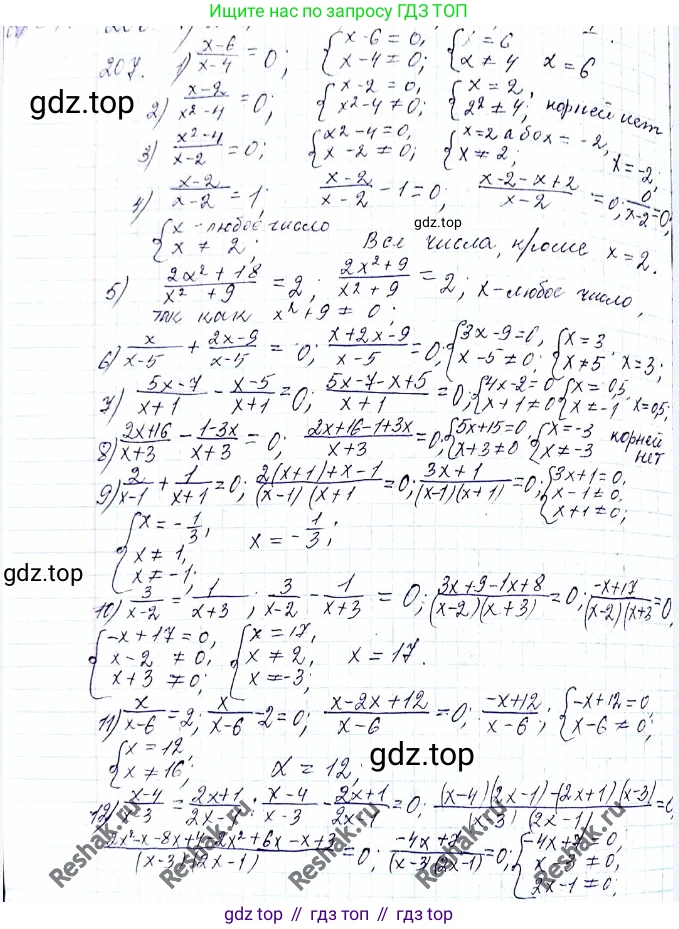 Ищите нас по запросу ГДЗ ТОП
207. 1) (x-6)/(x-4) = 0; {x-6=0, x-4=0; {x=6 x≠4 x=6
2) (x-2)/(x²-4) = 0; {x-2=0, x²-4≠0; {x=2, 2²≠4; корней нет
gdz.top
3) (x²-4)/(x-2) = 0; {x²-4=0, x-2≠0; {x=2 або x=-2, x≠2; x=-2;
4) (x-2)/(x-2) = 1; (x-2)/(x-2) - 1 = 0; (x-2-x+2)/(x-2) = 0; 0/(x-2) = 0;
gdz.top
{x - любое число x≠2; Все числа, кроме x=2.
5) (2x²+18)/(x²+9) = 2; (2x²+9)/(x²+9) = 2; x - любое число,
так как x²+9≠0;
6) x/(x-5) + (2x-9)/(x-5) = 0; (x+2x-9)/(x-5) = 0; {3x-9=0, x-5≠0; {x=3 x≠5 x=3;
7) (5x-7)/(x+1) - (x-5)/(x+1) = 0; (5x-7-x+5)/(x+1) = 0; {4x-2=0 x+1≠0 {x=0,5 x≠-1 x=0,5;
8) (2x+16)/(x+3) - (1-3x)/(x+3) = 0; (2x+16-1+3x)/(x+3) = 0; {5x+15=0, x+3≠0 {x=-3 x≠-3 корней нет
9) 2/(x-1) + 1/(x+1) = 0; (2(x+1)+x-1)/((x-1)(x+1) = 0; (3x+1)/((x-1)(x+1)) = 0; {3x+1=0, x-1≠0, x+1≠0;
{x=-1/3, x≠1, x≠-1; x=-1/3;
gdz.top
10) 3/(x-2) = 1/(x+3); 3/(x-2) - 1/(x+3) = 0; (3x+9-1x+8)/((x-2)(x+3)) = 0; (-x+17)/((x-2)(x+3 = 0;
{-x+17=0, x-2≠0, x+3≠0; {x=17, x≠2, x≠-3; x=17.
11) x/(x-6) = 2; x/(x-6) - 2 = 0; (x-2x+12)/(x-6) = 0; (-x+12)/(x-6); {-x+12=0 x-6≠0;
{x=12 x≠16; x=12;
gdz.top
12) (x-4)/(x-3) = (2x+1)/(2x-1); (x-4)/(x-3) - (2x+1)/(2x-1) = 0; ((x-4)(2x-1)-(2x+1)(x-3))/((x-3)(2x-1)) = 0
(2x²-x-8x+4-2x²+6x-x+3)/((x-3)(2x-1) = 0; (-4x+7)/((x-3)(2x-1) = 0; {-4x+7=0, x-3≠0, 2x-1≠0;
Reshak.ru Reshak.ru Reshak.ru Reshak.ru
gdz top // гдз топ // gdz.top